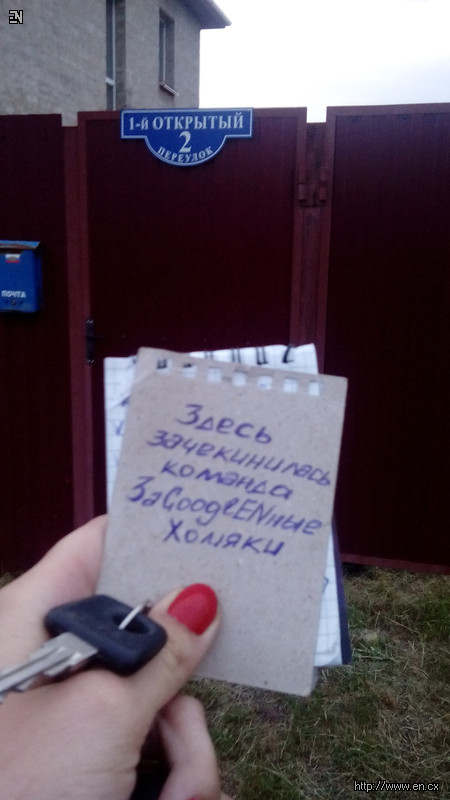 EN
1-й ОТКРЫТЫЙ
2
ПЕРЕУЛОК
ПОЧТА
Здесь
зачекинилась
команда
ЗаGooglENные
Хомяки
http://www.en.cx